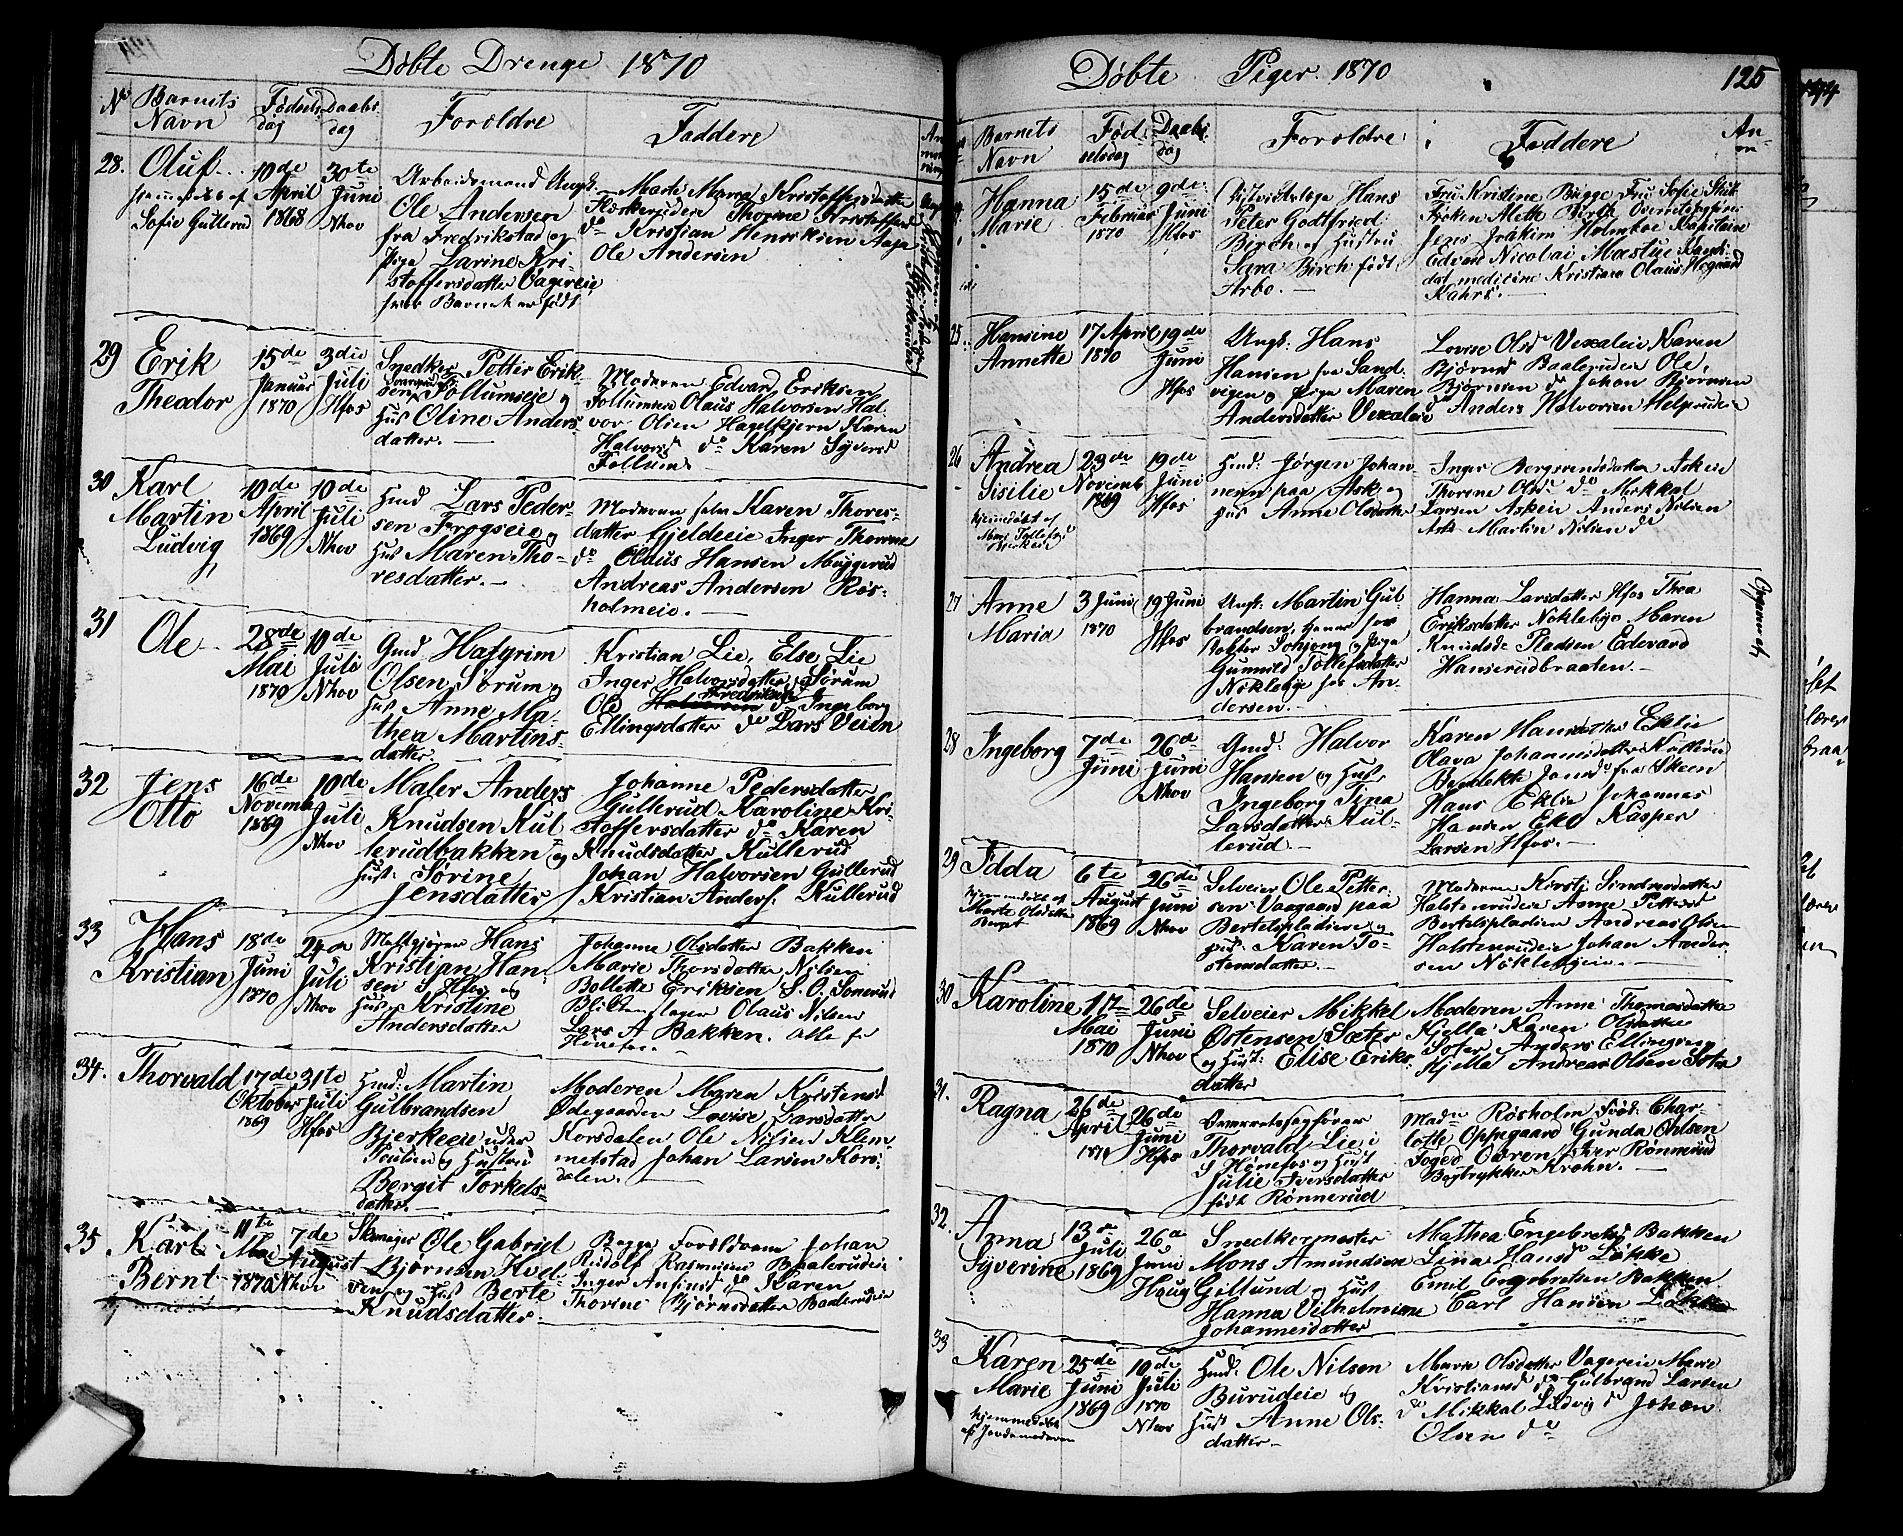 Døbte Drenge 1870
No
Barnets Navn
Fødselsdag
Daabsdag
Forældre
Faddere
28.
Oluf
hjemmedøbt af
Sofie Gullerud
10de
April
1868
30te
Juni
Nhov
Arbeidsmand Ungk.
Ole Andersen
fra Fredrikstad og
Pige Larine Kri-
stoffersdatter Vagereie
hvor Barnet er født
Marte Marea Kristoffersdatter
Thorine Kristoffersd
do Kristian Henriksen
Ole Andersen
29
Erik
Theodor
15de
Januar
1870
3die
Juli
Hfos
Snedker Petter Erik-
sen Follumseie og
Hus Oline Anders-
datter.
Moderen Edvard Eriksen
Follumseie Olaus Halvorsen Hal-
vor Olsen Hagelkjern Karen
Halvorsd do Karen Syversd
Follum
30
Karl
Martin
Ludvig
10de
April
1869
10de
Juli
Nhov
Husmd Lars Peder-
sen Frogseie og
Hus Maren Tho-
resdatter.
Moderen selv Karen Thores-
datter Fjeldeeie Inger Thorine
do Olaus Hansen Muggerud
Andreas Andersen Røs-
holmeie.
31
Ole
28de
Mai
1870
10de
Juli
Nhov
Gmd Hafgrim
Olsen Sørum og
Hus Anne Ma-
thea Martins-
datter.
Kristian Lie, Else Lie
Inger Halvorsdatter Sørum
Ole Fredriksen do Ingeborg
Ellingsdatter do Lars Veien
32
Jens
Otto
16de
Novemb
1869
10de
Juli
Nhov
Maler Anders
Knudsen Kul
lerudbakken og
Hust: Sørine
Jensdatter
Johanne Pedersdatter
Gullerud Karoline Kri-
stoffersdatter do Karen
Knudsdatter Kullerud
Johan Halvorsen Gullerud
Kristian Anders. Kullerud
33
Hans
Kristian
18de
Juni
1870
24de
Juli
Nhov
Hans
Kristian Han-
sen S Hfos og
Hust Kristine
Andersdatter
Johanne Olsdatter Bakken
Marie Thorsdatter Nilsen
Bollette Eriksen S. O. Sønerud
Olaus Nilsen
Lars A Bakken. alle fr
Hønefos.
34.
Thorvald
17de
Oktober
1869
31te
Juli
Hfos
Husmd: Martin
Gulbrandsen
Bjerkeeie under
og Hustru
Bergit Torkels-
datter.
Moderen Maren Kristensd
Ødegaarden Lovise Larsdatter
Korsdalen Ole Nilsen Klem-
metstad Johan Larsen Kors-
dalen.
35
Karl
Bernt
11te
Mai
1870
7de
August
Nhov
Skomager Ole Gabriel
Bjørnsen Hval-
ven og Hust Berte
Knudsdatter.
Begge Forældrene Johan
Rudolf Rasmussen Baalerudeie
Inger Antinsd do Karen
Thorine Bjørnsdatter Baalerudeie
Døbte Piger 1870
125
Barnets Navn
Fødselsdag
Daabsdag
Forældre
Faddere
Hanna
Marie
15de
Februar
1870
9de
Juni
Hfos
Distriktslæge Hans
Peter Godtfried
Birch og Hustru
Sara Birch født
Arbo.
Fru Kristine Bugge Fru Sofie
Frøken Alette Birch Overretssagfører
Jens Joakim Holmboe Kapitaine
Edvard Nicolai Mæstue Kandi-
dat medicine Kristian Olaus
Kahrs.
25
Hansine
Annette
17 April
1870
19de
Juni
Hfos
Ungk. Hans
Hansen fra Sand-
vigen og Pige Maren
Andersdatter Vexaleie
Lovise Olsd Vexaleie Karen
Bjørnsd Baalerudeie Ole
Bjørnsen do Johan Bjørnsen
do Anders Halvorsen Helgerudeie
26
Andrea
Sisilie
hjemmedøbt af
23de
Novemb
1869
19de
Juni
Hfos
Husmd: Jørgen Johan-
nesen paa Ask og
Hus Anne Olsdatter
Inger Bergsvendsdatter Askeie
Thorine Olsd do Mikkel
Larsen Askeie Anders Nilsen
Ask Martin Nilsen do
27
Anne
Maria
3 Juni
1870
19 Juni
Hfos
Ungk: Martin Gul-
brandsen, tjener hos
Gunnild Tollefsdatter
Nøkleby hos An-
dersen.
Hanna Larsdatter Hfos Thea
Eriksdatter Nøkleby Maren
Knudsd Edvard
Hanserudbraaten.
28
Ingeborg
7de
Juni
26de
Juni
Nhov
Gmd: Halvor
Hansen og Hust.
Ingeborg Sina
Larsdatter Kul-
lerud.
Karen Hansdatter Eklie
Olava Johannesdatter Kullerud
Bendikte Jonsd fra Skeen
Hans Eklie Johannes
Hansen Ekl Kasper
Larsen Hfos.
29
Idda
hjemmedøbt af
Marte Olsdatter
Berget
6te
August
1869
26de
Juni
Nhov
Selveier Ole Petter-
sen Vaagaard paa
Bertelspladsen og
Hust. Karen To-
stensdatter.
Moderen Kirsti Sindresdatter
Halstenrudeie Anne Pettersd
Bertelspladsen Andreas Olsen
Halstenrudeie Johan Ander-
sen Nøklebyeie.
30
Karoline
17
Mai
1870
26de
Juni
Nhov
Selveier Mikkel
Østensen Sæter
og Hust: Elise Eriks-
datter
Moderen Anne Thomasdatter
Kjella Karen Olsdatter
Anders Ellingsen
Kjella Andreas Olsen
31.
Ragna
26de
April
1870
26de
Juni
Hfos
Overretssagfører
Thorvald Lie i
S Hønefos og Hust
Julie Iversdatter
født Rønnerud
Madm Røsholm Frøk: Char-
lotte Oppegaard Gunda Ohlsen
Foged Owren Rønnerud
Bogtrykker Krohn.
32.
Anna
Syverine
13de
Juli
1869
26de
Juni
Haug
Snedkermester
Mons Amundsen
Gillund og Hust
Hanna Vilhelmine
Johannesdatter
Mathea Engebretsd Bakken
Lina Hansd Løkke
Emil Engebretsen Bakken
Carl Hansen Løkke
33
Karen
Marie
hjemmedøbt
af Jordemoderen
25de
Juni
1869
10de
Juli
1870
Nhov
Husmd: Ole Nilsen
Burudeie og
Hust Anne Ols-
datter
Marie Olsdatter Vagereie Marie
Kristiansd do Gulbrand Larsen
do Mikkal Ludvig s Johan
Olsen do